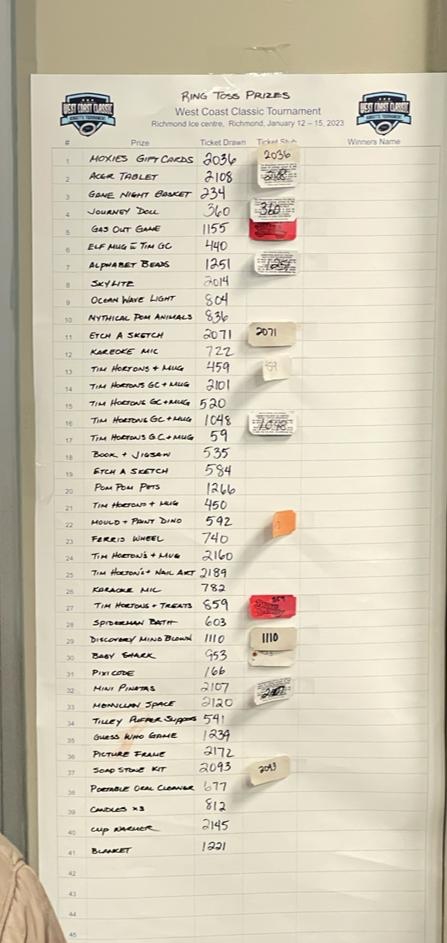 WEST COAST CLASSIC
RING TOSS PRIZES
WEST COAST CLASSIC
West Coast Classic Tournament
Richmond Ice centre, Richmond, January 12 – 15, 2023
# Prize Ticket Drawn Ticket Stub Winners Name
1 MOXIES GIFT CARDS 2036 2036
2 ACER TABLET 2108 2108
3 GAME NIGHT BASKET 234
4 JOURNEY DOLL 360 360
5 GAS OUT GAME 1155
6 ELF MUG = TIM GC 440
7 ALPHABET BEADS 1251 1251
8 SKYLITE 2014
9 OCEAN WAVE LIGHT 804
10 MYTHICAL POM ANIMALS 836
11 ETCH A SKETCH 2071 2071
12 KAREOKE MIC 722
13 TIM HORTONS + MUG 459
14 TIM HORTONS GC + MUG 2101
15 TIM HORTONS GC + MUG 520
16 TIM HORTONS GC + MUG 1048 1048
17 TIM HORTONS GC + MUG 59
18 BOOK + JIGSAW 535
19 ETCH A SKETCH 584
20 POM POM PETS 1266
21 TIM HORTONS + MUG 450
22 MOULD + PAINT DINO 592
23 FERRIS WHEEL 740
24 TIM HORTON'S + MUG 2160
25 TIM HORTON'S + NAIL ART 2189
26 KARAOKE MIC 782
27 TIM HORTONS + TREATS 859 859
28 SPIDERMAN BATH 603
29 DISCOVERY MIND BLOWN 1110 1110
30 BABY SHARK 953
31 PIXICODE 166
32 MINI PINATAS 2107 2107
33 SPACE 2120
34 TILLEY PUFFER 541
35 GUESS WHO GAME 1239
36 PICTURE FRAME 2172
37 SOAP STONE KIT 2093 2093
38 PORTABLE ORAL CLEANER 677
39 CANDLES x3 812
40 CUP WARMER 2145
41 BLANKET 1221
42
43
44
45